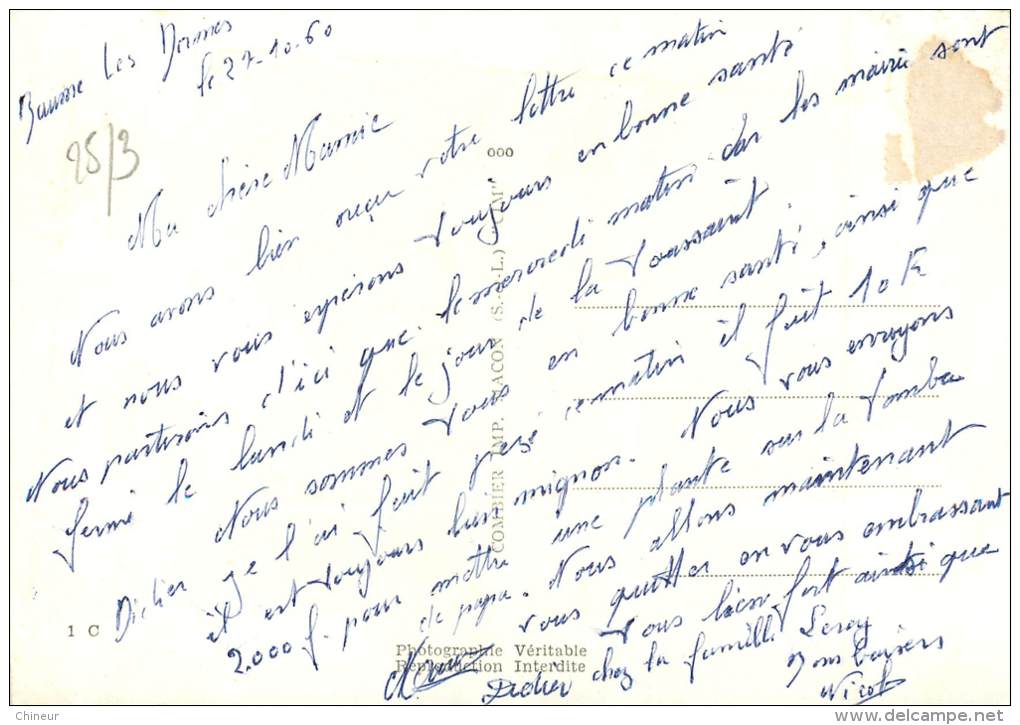 Baume Les Dames
le 27-10-60
25/3
Ma chère Mamie
Nous avons bien reçu votre lettre ce matin
et nous vous esperons toujours en bonne santé
Nous partirons d'ici que le mercredi matin car les mairie sont
fermé le lundi et le jour de la Toussaint.
Nous sommes tous en bonne santé, ainsi que
Didier je l'ai fait pesé ce matin il fait 10 K
il est toujours bien mignon. Nous vous envoyons
2.000 f. pour mettre une plante sur la tombe
de papa. Nous allons maintenant
vous quitter en vous embrassant
tous bien fort ainsi que
Didier chez la famille Leroy
Bons baisers
Nicole
000
COMBIER IMP. MACON (S.-&-L.) "CIM"
1 C
Photographie Véritable
Reproduction Interdite
Chineur
www.delcampe.net